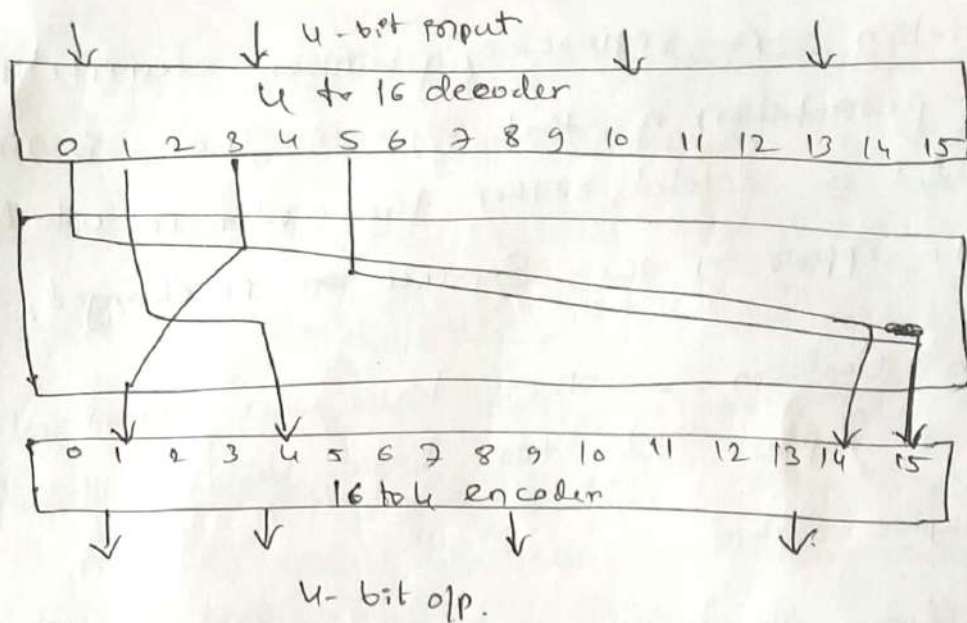 4-bit input
4 to 16 decoder
0 1 2 3 4 5 6 7 8 9 10 11 12 13 14 15
0 1 2 3 4 5 6 7 8 9 10 11 12 13 14 15
16 to 4 encoder
4-bit o/p.